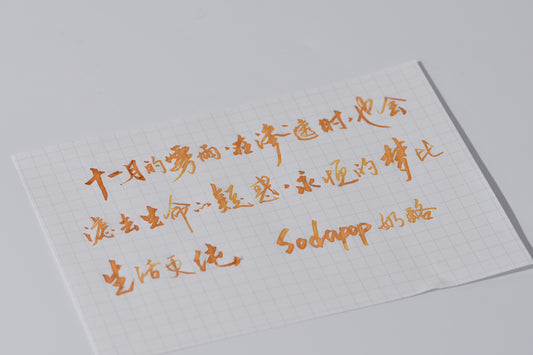 十一月的雾雨·在渗透时·也会
滤去生命心疑惑·永恒的梦比
生活更纯 Sodapop 奶酪